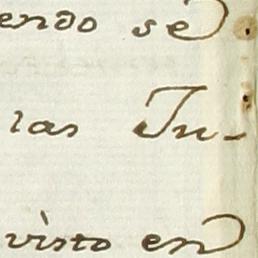 endo se
las In-
visto en